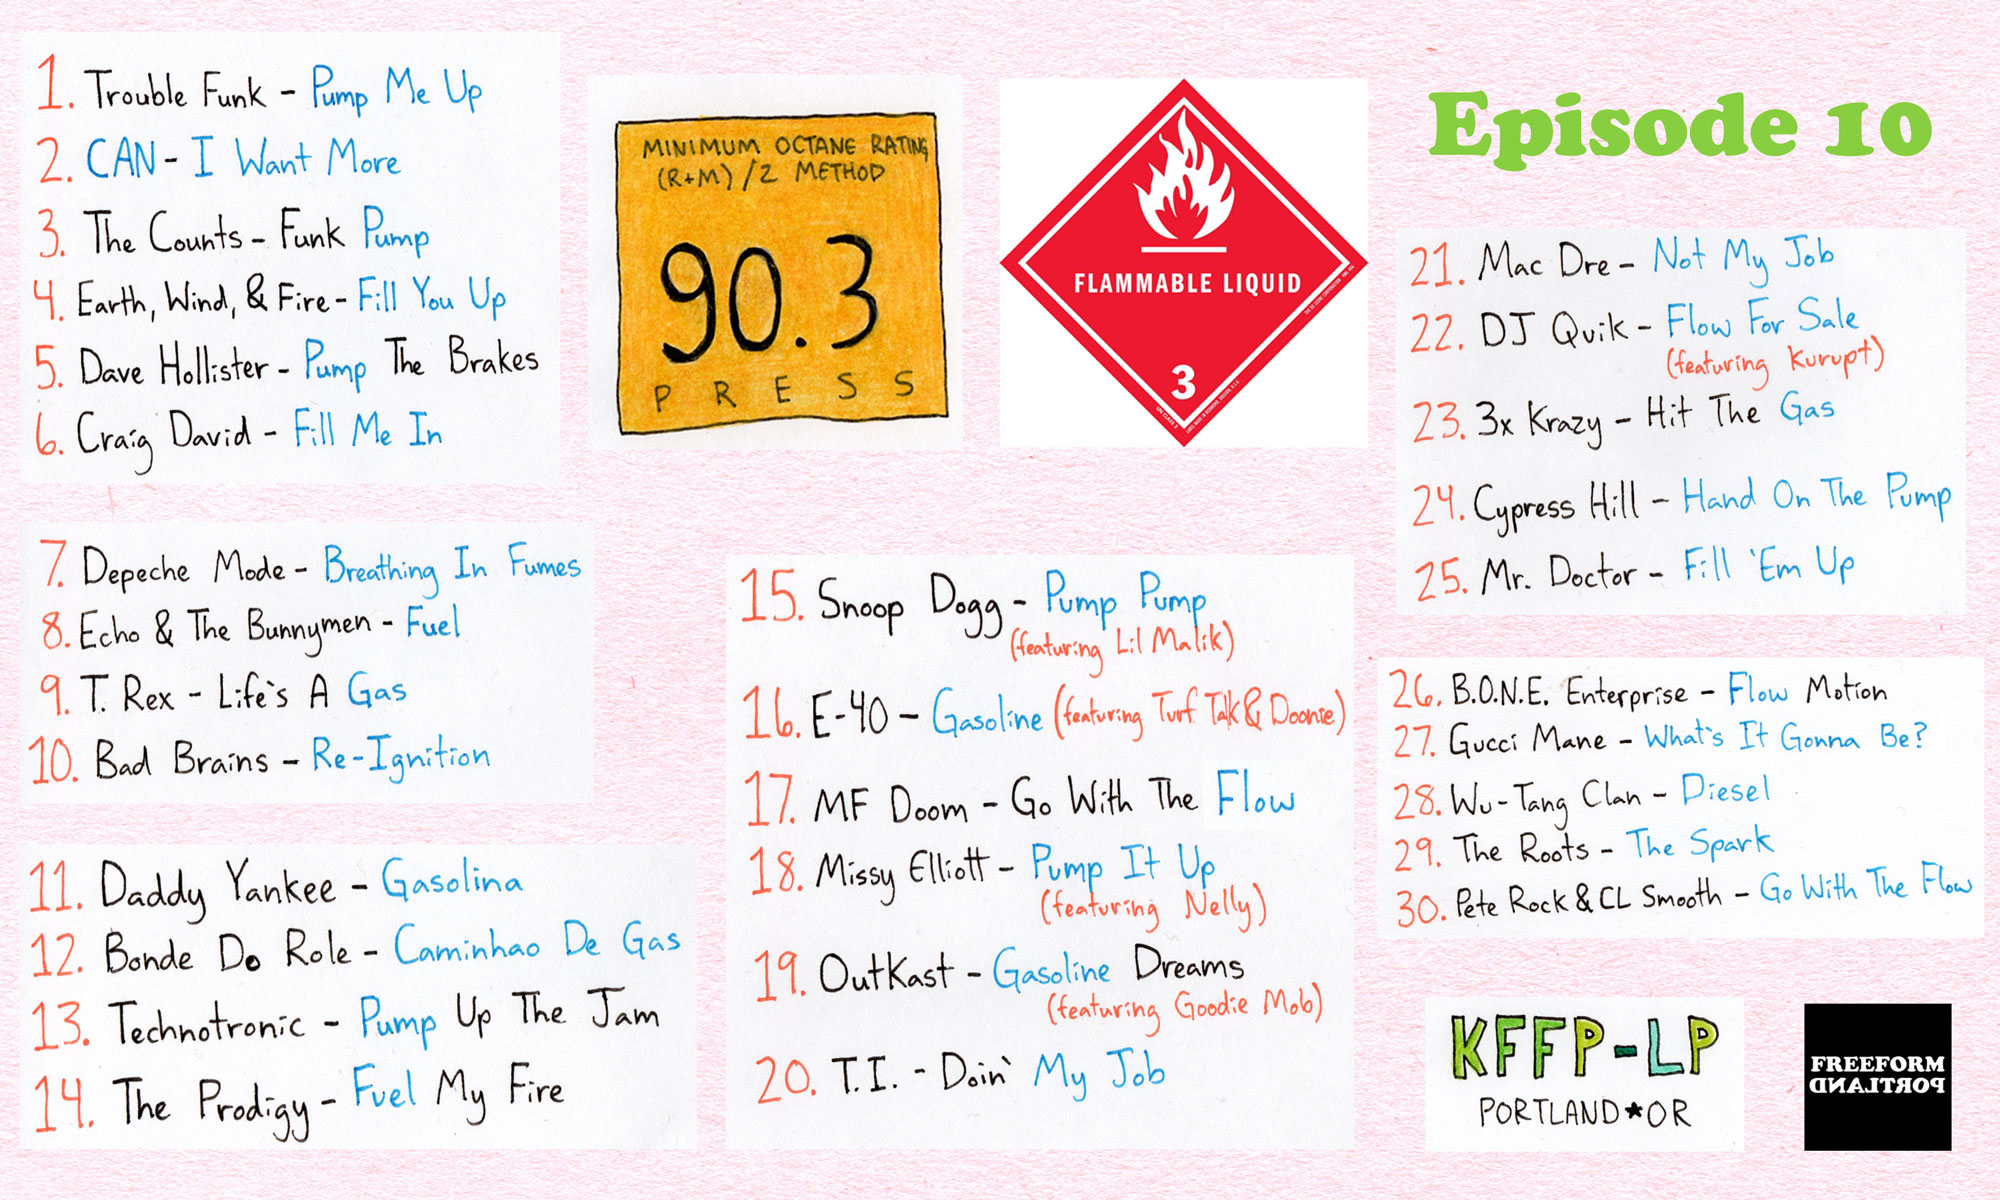 1. Trouble Funk - Pump Me Up
2. CAN - I Want More
3. The Counts - Funk Pump
4. Earth, Wind, & Fire - Fill You Up
5. Dave Hollister - Pump The Brakes
6. Craig David - Fill Me In
7. Depeche Mode - Breathing In Fumes
8. Echo & The Bunnymen - Fuel
9. T. Rex - Life's A Gas
10. Bad Brains - Re-Ignition
11. Daddy Yankee - Gasolina
12. Bonde Do Role - Caminhao De Gas
13. Technotronic - Pump Up The Jam
14. The Prodigy - Fuel My Fire
MINIMUM OCTANE RATING
(R+M)/2 METHOD
90.3
PRESS
FLAMMABLE LIQUID
3
15. Snoop Dogg - Pump Pump
(featuring Lil Malik)
16. E-40 - Gasoline (featuring Turf Talk & Doonie)
17. MF Doom - Go With The Flow
18. Missy Elliott - Pump It Up
(featuring Nelly)
19. OutKast - Gasoline Dreams
(featuring Goodie Mob)
20. T.I. - Doin' My Job
Episode 10
21. Mac Dre - Not My Job
22. DJ Quik - Flow For Sale
(featuring Kurupt)
23. 3x Krazy - Hit The Gas
24. Cypress Hill - Hand On The Pump
25. Mr. Doctor - Fill 'Em Up
26. B.O.N.E. Enterprise - Flow Motion
27. Gucci Mane - What's It Gonna Be?
28. Wu-Tang Clan - Diesel
29. The Roots - The Spark
30. Pete Rock & CL Smooth - Go With The Flow
KFFP-LP
PORTLAND*OR
FREEFORM
PORTLAND